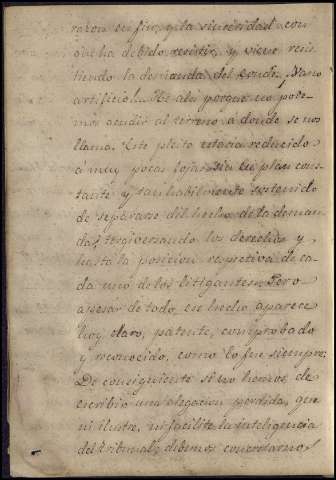 razon en fin, y la sinceridad con
que ha debido resistir, y viene resis
tiendo la demanda del Conde. ¡Vano
artificio!.. He ahi porque no pode-
mos acudir al terreno a donde se nos
llama. Este pleito estaria reducido
a muy pocas fojas sin el plan cons-
tante y tan habilmente sostenido
de separarse del hecho de la deman-
da, tergiversando los derechos y
hasta la posicion respectiva de ca-
da uno de los litigantes. Pero
apesar de todo, el hecho aparece
hoy claro, patente, comprobado
y reconocido, como lo fue siempre.
De consiguiente si no hemos de
escribir una alegacion perdida, que
ni ilustre, ni facilite la inteligencia
del tribunal, debemos concretarnos